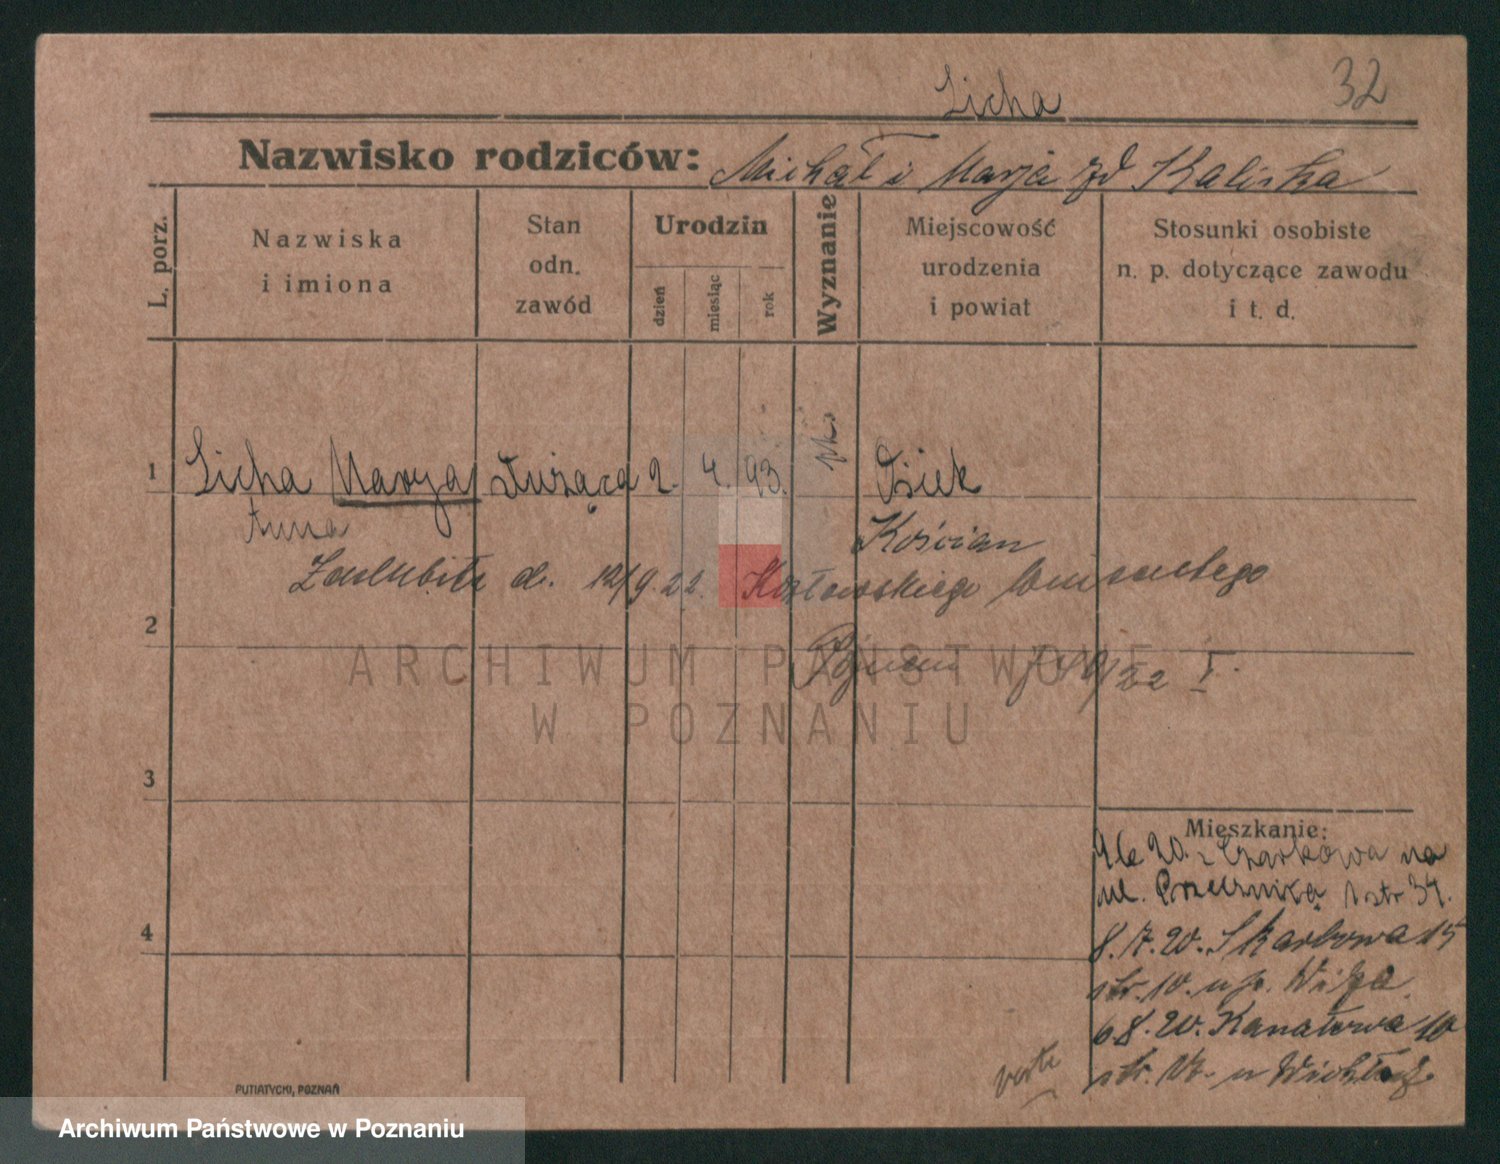 Licha
32
Nazwisko rodziców: Michał i Marja zd Kaliska
L. porz.
Nazwiska
i imiona
Stan
odn.
zawód
Urodzin
dzień
miesiąc
rok
Wyznanie
Miejscowość
urodzenia
i powiat
Stosunki osobiste
n. p. dotyczące zawodu
i t. d.
1 Licha Marya służąca 2. 4. 93. rk. Osiek
Anna
Kościan
Zaślubiła d. 12/9.22. Kozłowskiego
2
3
4
Mieszkanie:
20. z Czarkowa na
ul. 1 str 34.
8.7.20. Skarbowa 15
str. 10. u p.
6.8.20. Kanałowa 10
str. u
verte
PUTIATYCKI, POZNAŃ
ARCHIWUM PAŃSTWOWE
W POZNANIU
Archiwum Państwowe w Poznaniu